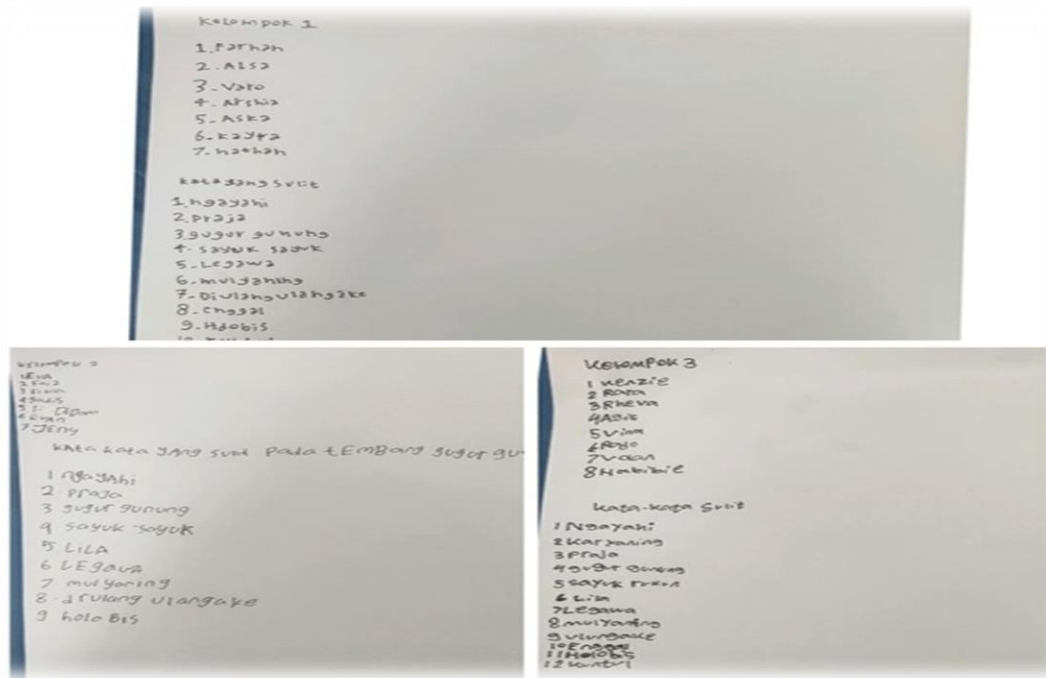 Kelompok 1
1. Farhan
2. Alsa
3. Varo
4. Arshia
5. Aska
6. Kayra
7. nathan
kata yang sulit
1. ngayahi
2. praja
3. gugur gunung
4. sayuk sayuk
5. Legawa
6. mulyaning
7. Diulangulangake
8. Enggal
9. Holobis
kelompok 2
7 JEny
kAta kata yAng sulit pada tEmBang gugur gu
1 ngayAhi
2 praja
3 gugur gunung
4 sayuk-sayuk
5 LiLA
6 LEgawa
7 mulyaning
8 diulang ulangake
9 holo Bis
KELOMPOK 3
1 KENZIE
2 Rara
3 RhEva
5 Vina
8 Habibie
kata-kata sulit
1 Ngayahi
2 Karyaning
3 Praja
4 gugur gunung
5 sayuk rukun
6 Lila
7 LEgawa
8 mulyaning
9 ulungake
10 Enggal
11 Holobis
12 kuntul